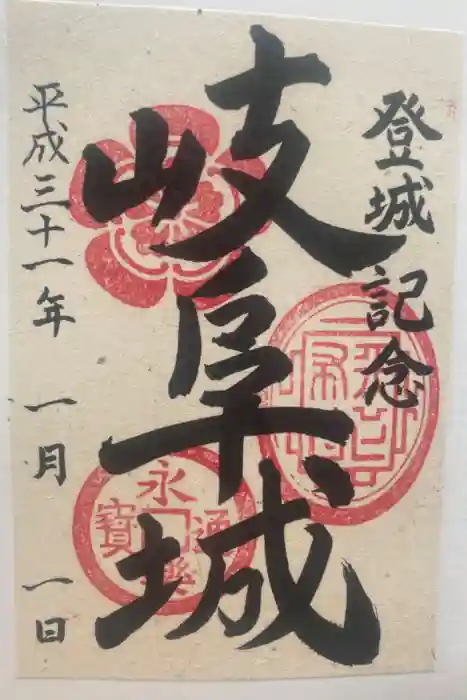 登城記念
岐阜城
平成三十一年 一月 一日
永樂通寶